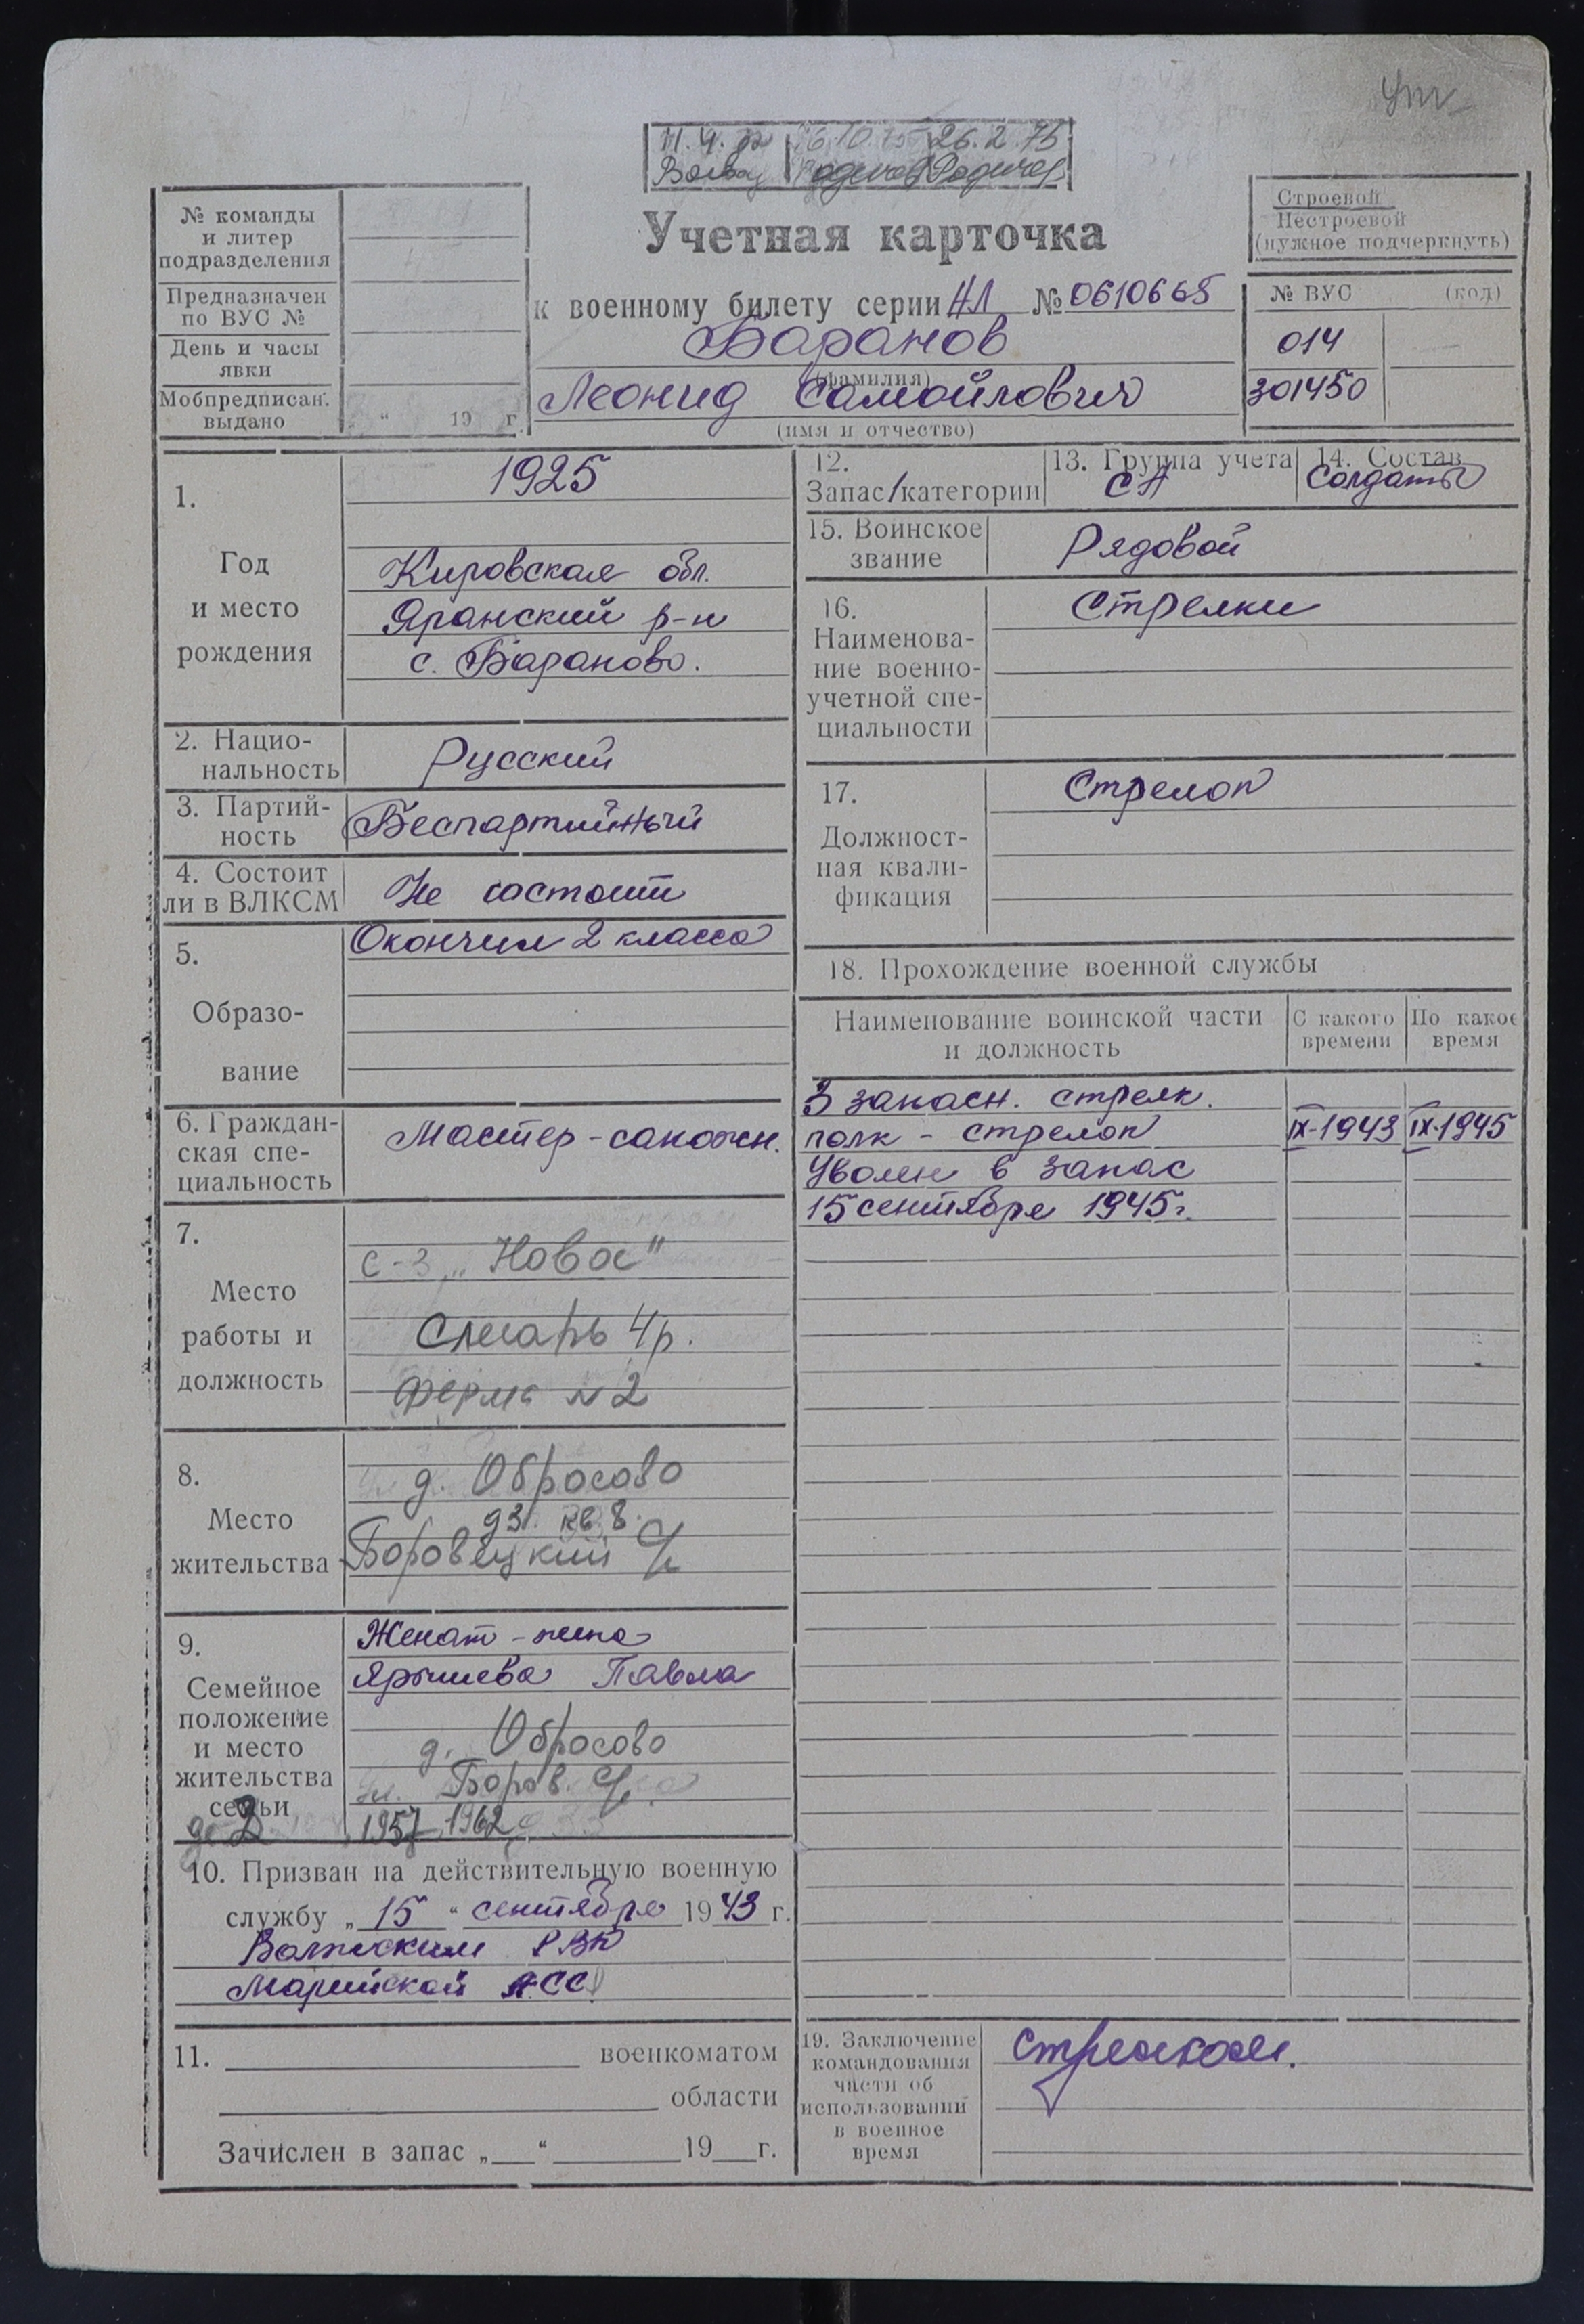 Ут
11.4.72 | 6.10.75 26.2.75
Учетная карточка
к военному билету серии НЛ № 0610665
Баранов
(фамилия)
Леонид Самойлович
(имя и отчество)
№ команды
и литер
подразделения
Предназначен
по ВУС №
День и часы
явки
Мобпредписан.
выдано
„ “ 19 г.
Строевой
Нестроевой
(нужное подчеркнуть)
№ ВУС (код)
014
301450
1.
Год
и место
рождения
1925
Кировская обл.
Яранский р-н
с. Бараново.
2. Нацио-
нальность
Русский
3. Партий-
ность
Беспартийный
4. Состоит
ли в ВЛКСМ
Не состоит
5.
Образо-
вание
Окончил 2 класса
6. Граждан-
ская спе-
циальность
Мастер-сапожн.
7.
Место
работы и
должность
с-з „Новое"
Слесарь 4р.
Ферма N 2
8.
Место
жительства
д. Обросово
д 31. кв 8.
Боровецкий с/с
9.
Семейное
положение
и место
жительства
семьи
Женат - жена
Ярышева Павла
д. Обросово
Боров. с/с
1957, 1962
10. Призван на действительную военную
службу „15“ сентября 1943 г.
Волжским РВК
Марийской АССР
11. военкоматом
области
Зачислен в запас „ “ 19 г.
12.
Запас/категории
13. Группа учета
СА
14. Состав
Солдаты
15. Воинское
звание
Рядовой
16.
Наименова-
ние военно-
учетной спе-
циальности
Стрелки
17.
Должност-
ная квали-
фикация
Стрелок
18. Прохождение военной службы
Наименование воинской части
и должность
С какого
времени
По какое
время
3 запасн. стрелк.
полк - стрелок IX-1943 IX-1945
Уволен в запас
15 сентября 1945г.
19. Заключение
командования
части об
использовании
в военное
время
стрелком.